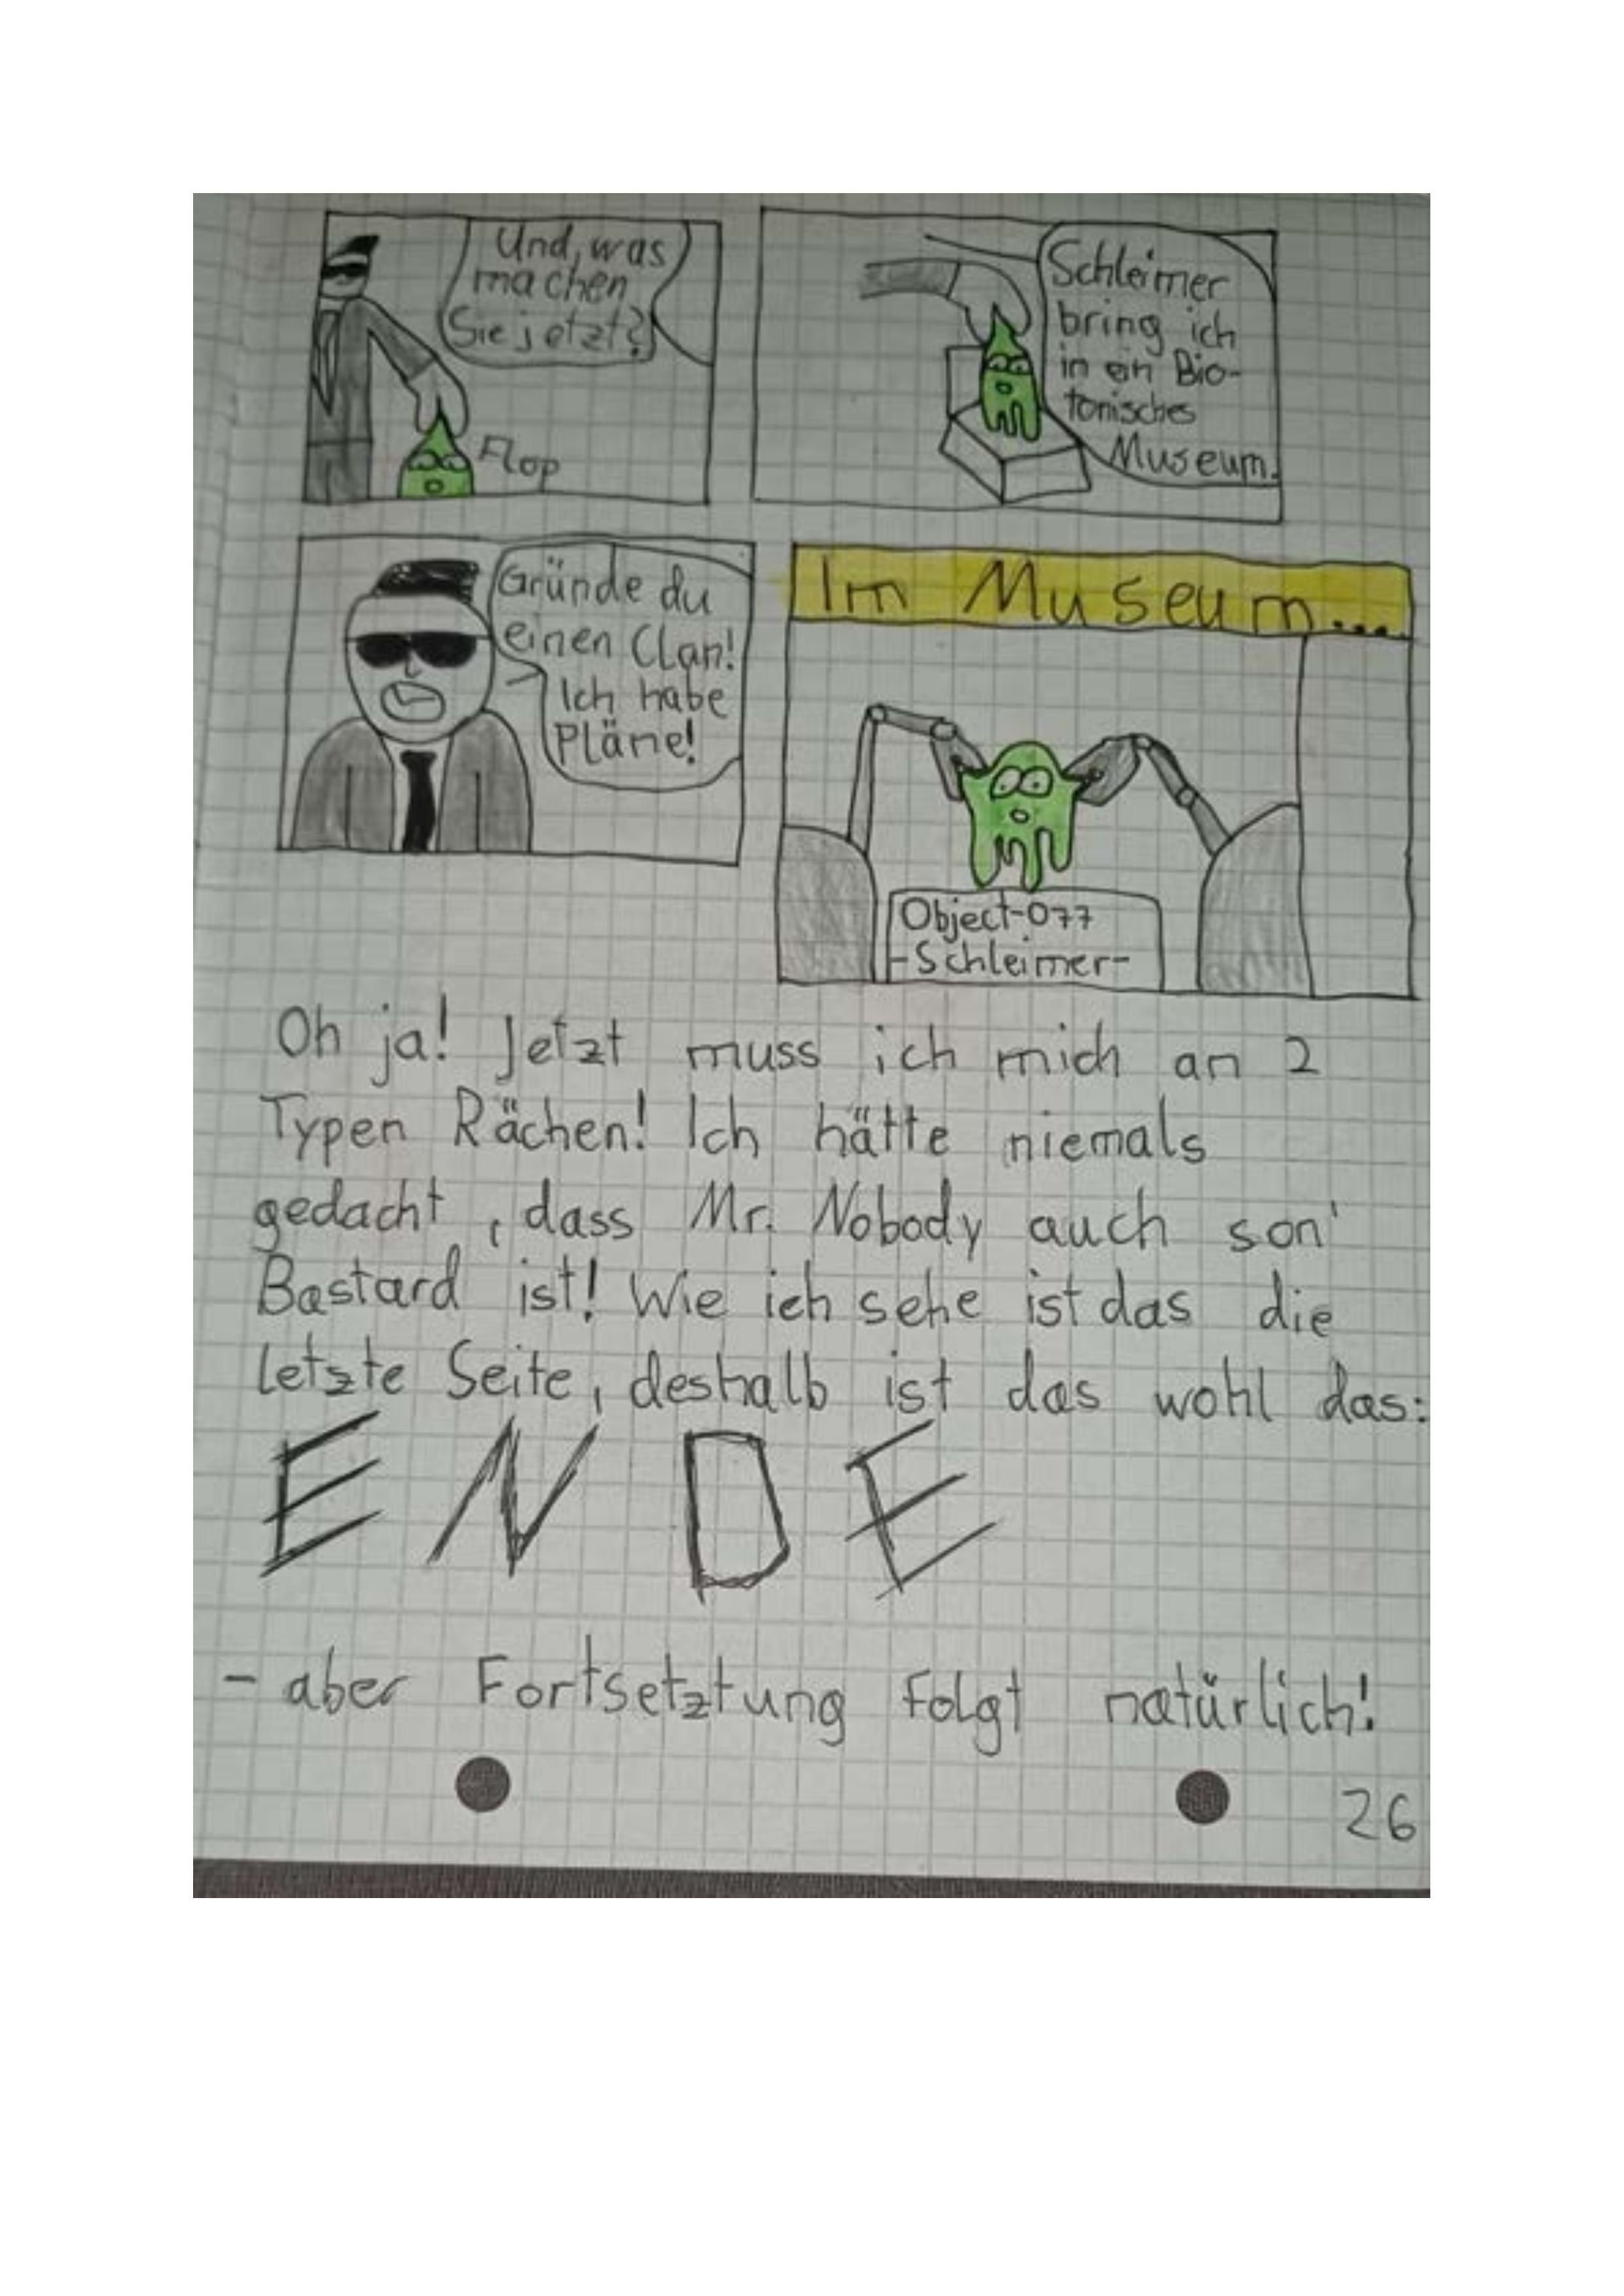 Und, was
machen
Sie jetzt?
Flop
Schleimer
bring ich
in ein Bio-
tonisches
Museum.
Gründe du
einen Clan!
Ich habe
Pläne!
Im Museum....
Object-077
-Schleimer-
Oh ja! Jetzt muss ich mich an 2
Typen Rächen! Ich hätte niemals
gedacht, dass Mr. Nobody auch son'
Bastard ist! Wie ich sehe ist das die
letzte Seite, deshalb ist das wohl das:
ENDE
- aber Fortsetztung folgt natürlich!
26